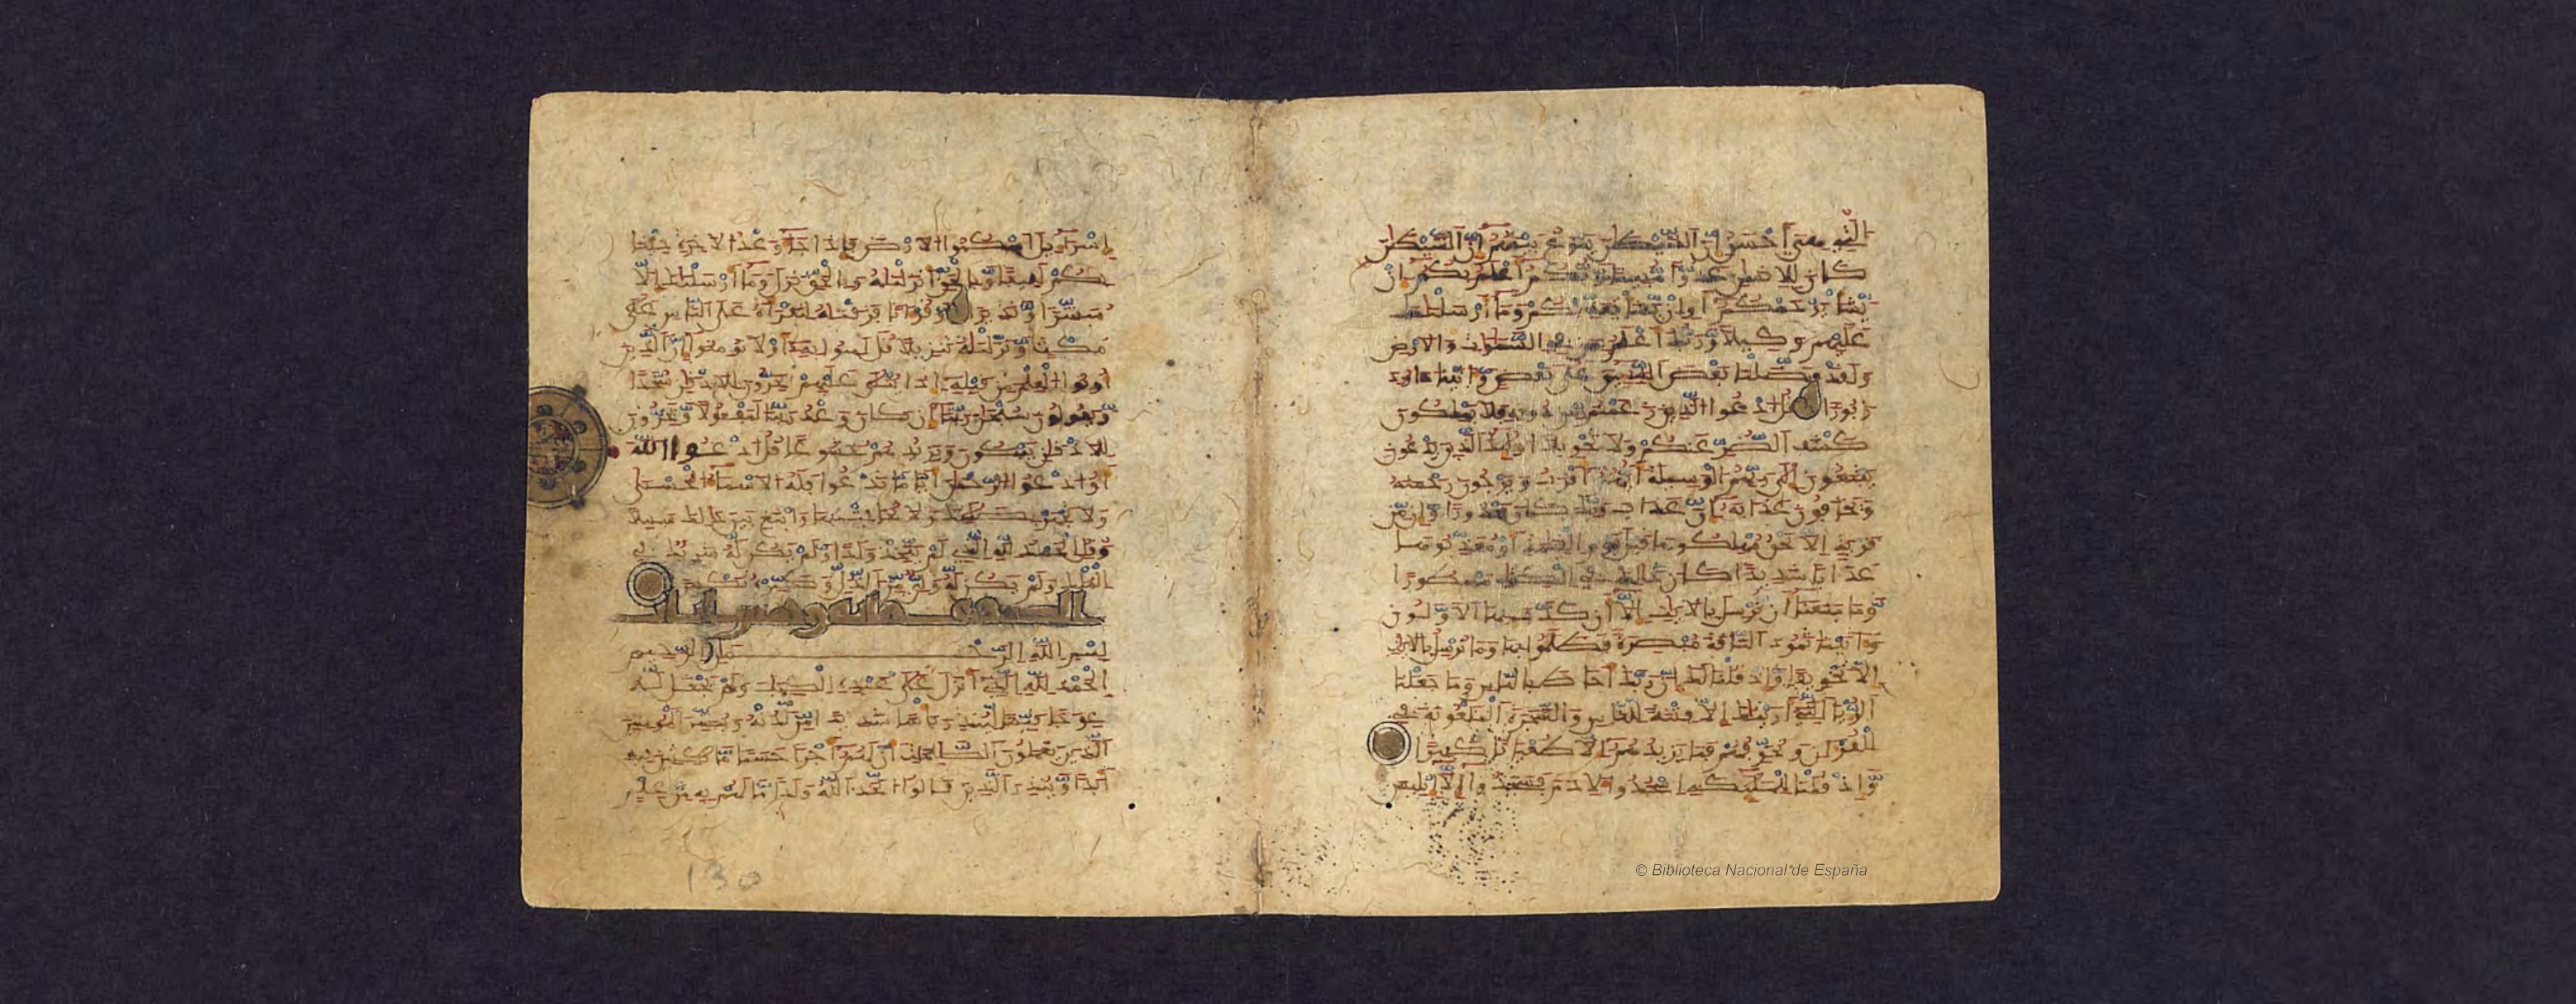 التي هي أحسن إن الشيطن ينزغ بينهم إن الشيطن
كان للانسن عدوا مبينا ربكم أعلم بكم إن
يشأ يرحمكم أو إن يشأ يعذبكم وما أرسلنك
عليهم وكيلا وربك أعلم بمن في السموت والارض
ولقد فضلنا بعض النبيين على بعض وءاتينا داود
زبورا قل ادعوا الذين زعمتم من دونه فلا يملكون
كشف الضر عنكم ولا تحويلا أولئك الذين يدعون
يبتغون إلى ربهم الوسيلة أيهم أقرب ويرجون رحمته
ويخافون عذابه إن عذاب ربك كان محذورا وإن من
قرية إلا نحن مهلكوها قبل يوم القيمة أو معذبوها
عذابا شديدا كان ذلك في الكتب مسطورا
وما منعنا أن نرسل بالايت إلا أن كذب بها الاولون
وءاتينا ثمود الناقة مبصرة فظلموا بها وما نرسل بالايت
إلا تخويفا وإذ قلنا لك إن ربك أحاط بالناس وما جعلنا
الرءيا التي أرينك إلا فتنة للناس والشجرة الملعونة في
القرءان ونخوفهم فما يزيدهم إلا طغينا كبيرا
وإذ قلنا للملئكة اسجدوا لادم فسجدوا إلا إبليس
إسرءيل اسكنوا الارض فإذا جاء وعد الاخرة جئنا
بكم لفيفا وبالحق أنزلنه وبالحق نزل وما أرسلنك إلا
مبشرا ونذيرا وقرءانا فرقنه لتقرأه على الناس على
مكث ونزلنه تنزيلا قل ءامنوا به أو لا تومنوا إن الذين
أوتوا العلم من قبله إذا يتلى عليهم يخرون للاذقان سجدا
ويقولون سبحن ربنا إن كان وعد ربنا لمفعولا ويخرون
للاذقان يبكون ويزيدهم خشوعا قل ادعوا الله
أو ادعوا الرحمن أيا ما تدعوا فله الاسماء الحسنى
ولا تجهر بصلاتك ولا تخافت بها وابتغ بين ذلك سبيلا
وقل الحمد لله الذي لم يتخذ ولدا ولم يكن له شريك في
الملك ولم يكن له ولي من الذل وكبره تكبيرا
الكهف مائة وخمس ءايات
بسم الله الرحمن الرحيم
الحمد لله الذي أنزل على عبده الكتب ولم يجعل له
عوجا قيما لينذر بأسا شديدا من لدنه ويبشر المومنين
الذين يعملون الصلحت أن لهم أجرا حسنا مكثين فيه
أبدا وينذر الذين قالوا اتخذ الله ولدا ما لهم به من علم
130
© Biblioteca Nacional de España